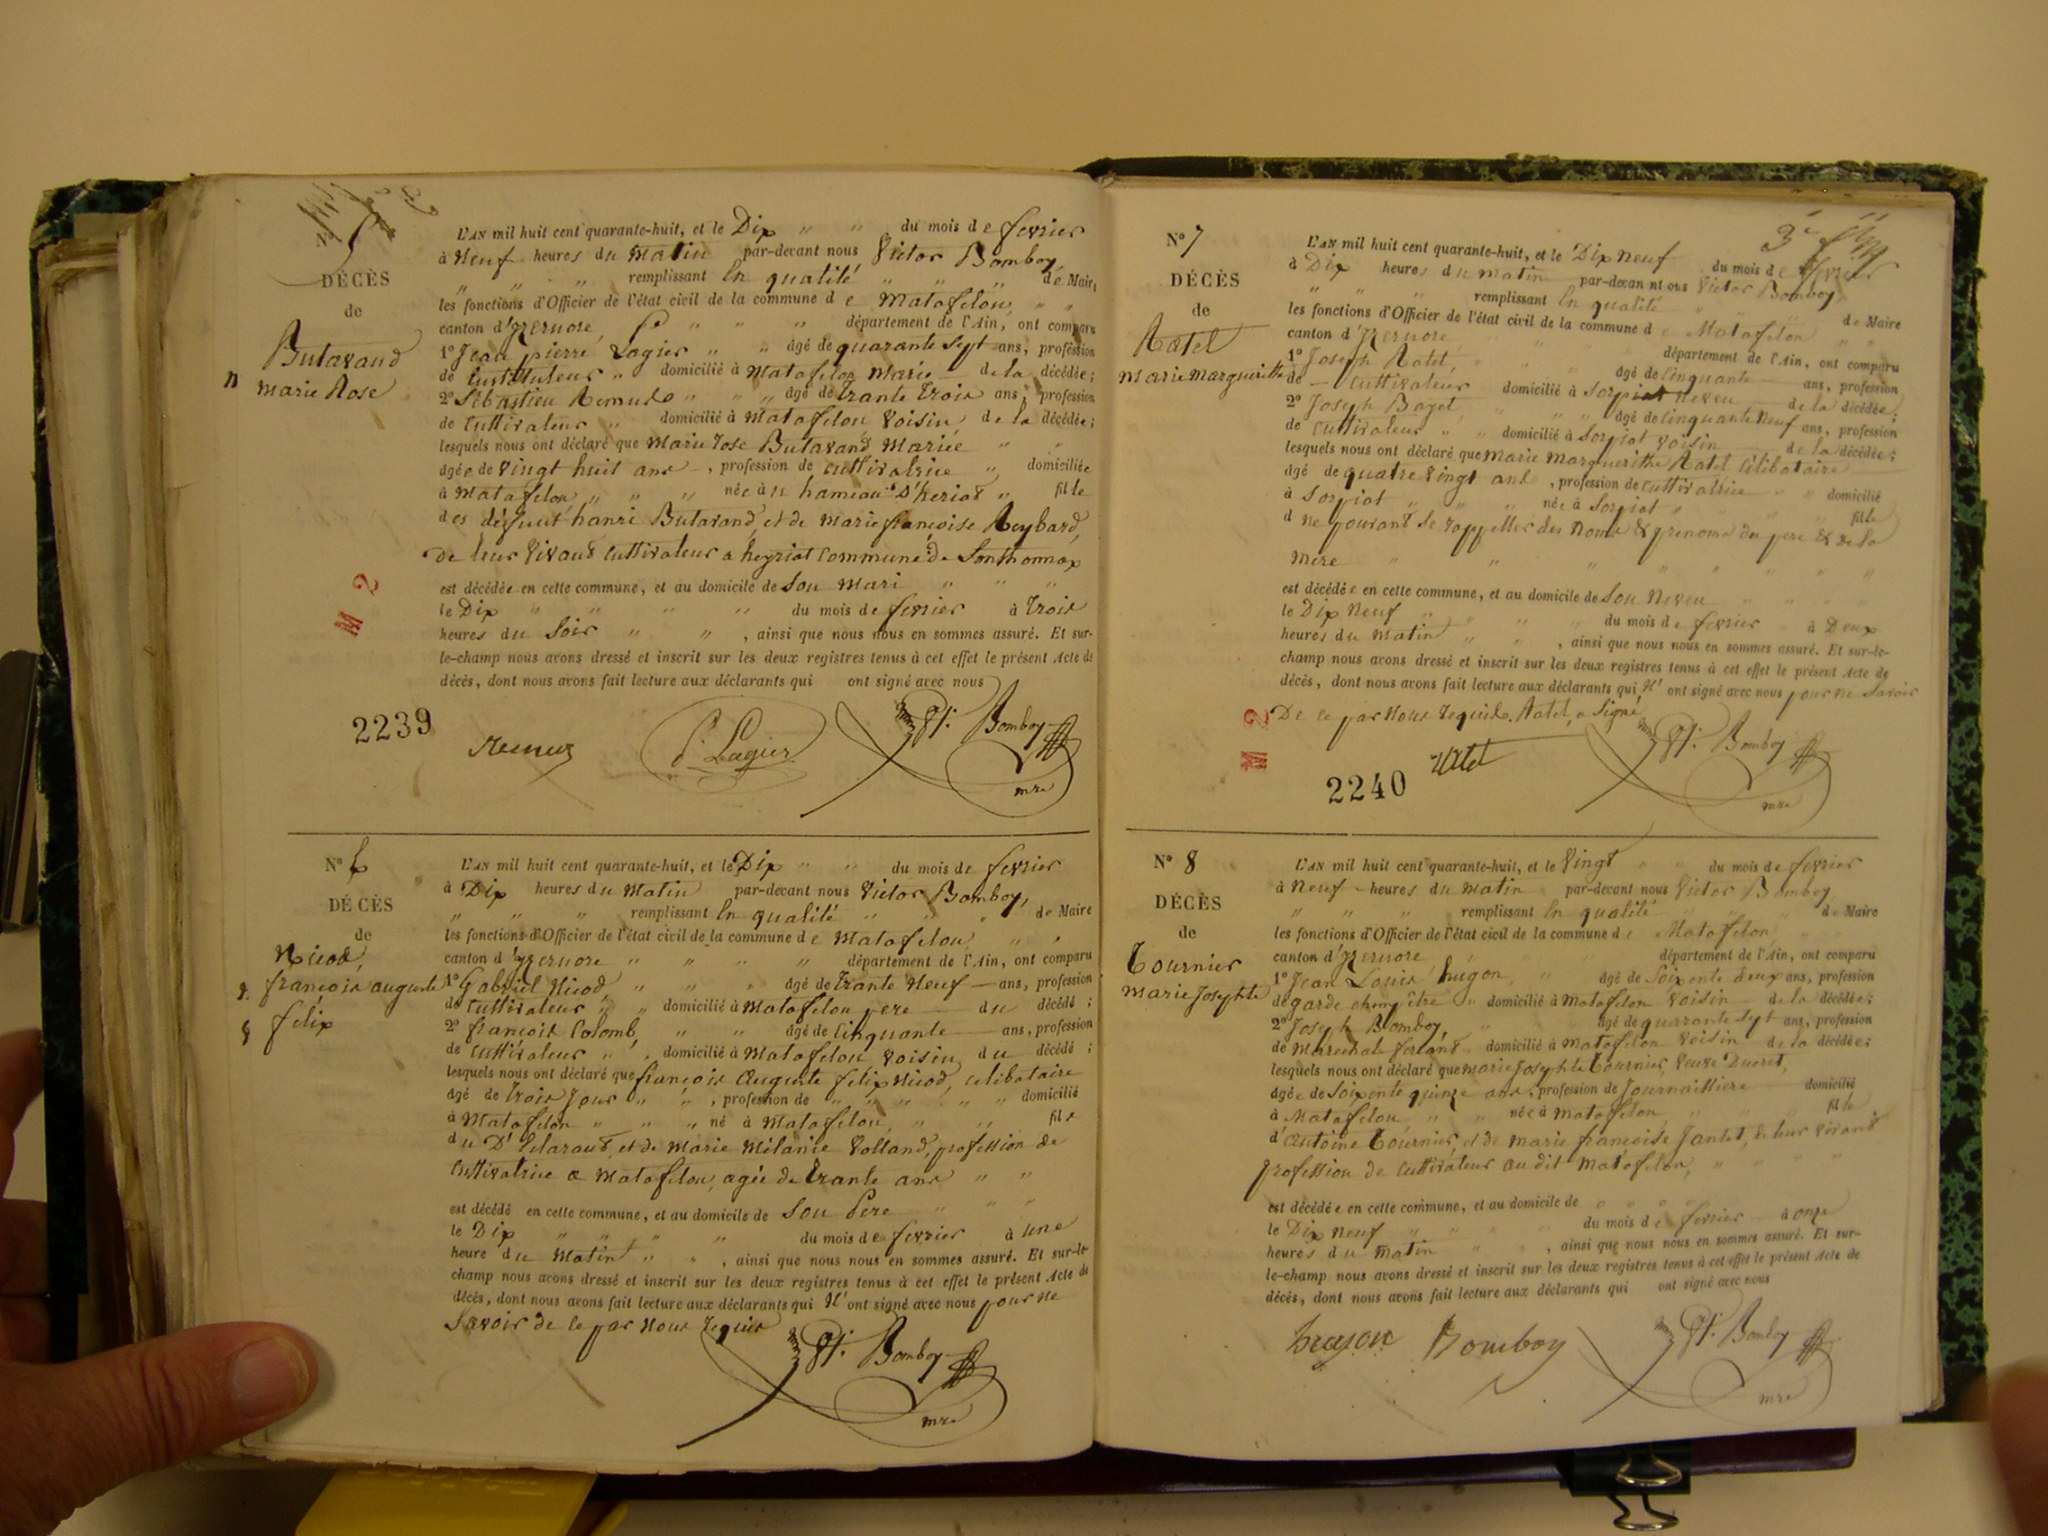 N° 5
DÉCÈS
de
Butavand
marie Rose
L'AN mil huit cent quarante-huit, et le Dix " " du mois de fevrier
à Neuf heures du matin par-devant nous Victor Bomboy
" " remplissant En qualité " " " de Maire
les fonctions d'Officier de l'état civil de la commune de Matafelon " "
canton d'Izernore, " " " département de l'Ain, ont comparu
1° Jean pierre Lagier " " âgé de quarante Sept ans, profession
de Instituteur " domicilié à Matafelon Marie de la décédée;
2° Sébastien Remuds " " " âgé de trante trois ans, profession
de cuttivateur " domicilié à Matafelon Voisin de la décédée;
lesquels nous ont déclaré que Marie rose Butavand Mariée " "
âgée de vingt huit ans, profession de cuttivatrice " domiciliée
à Matafelon " " " née à u hameau d'heriat " fille
des défunt hanri Butavand, et de marie francoise Reybard,
de leur vivant cuttivateur a heyriat commune de Sonthonnax
est décédée en cette commune, et au domicile de Son mari " " "
le Dix " " " " du mois de fevrier à trois
heures du Soir " " , ainsi que nous nous en sommes assuré. Et sur-
le-champ nous avons dressé et inscrit sur les deux registres tenus à cet effet le présent Acte de
décès, dont nous avons fait lecture aux déclarants qui ont signé avec nous
M 2
2239
Remuds P. Lagier Vt. Bomboy
mre
N° 6
DÉCÈS
de
Nicod,
françois auguste
felix
L'AN mil huit cent quarante-huit, et le Dix " " du mois de fevrier
à Dix heures du Matin par-devant nous Victor Bomboy,
" " " remplissant En qualité " " " de Maire
les fonctions d'Officier de l'état civil de la commune de Matafelon " "
canton d'Izernore " " " " département de l'Ain, ont comparu
1° Gabriel Nicod " " " âgé de trante Neuf ans, profession
de cuttivateur " " domicilié à Matafelon pere du décédé;
2° françois Colomb, " " âgé de Cinquante ans, profession
de cuttivateur " " domicilié à Matafelon voisin du décédé;
lesquels nous ont déclaré que françois Auguste felix Nicod, celibataire
âgé de trois jour " " , profession de " " " " " domicilié
à Matafelon " " " né à Matafelon, " " fils
du Dt Declarant, et de Marie Mélanie Volland, profession de
cuttivatrice a Matafelon, agée de trante ans " "
est décédé en cette commune, et au domicile de Son Pere " " "
le Dix " " " du mois de fevrier à une
heure du Matin " " , ainsi que nous nous en sommes assuré. Et sur-le
champ nous avons dressé et inscrit sur les deux registres tenus à cet effet le présent Acte de
décès, dont nous avons fait lecture aux déclarants qui N' ont signé avec nous pour ne
Savoir de ce par Nous requis
Vt. Bomboy
mre
3e
N° 7
DÉCÈS
de
Ratel
Marie marguerithe
L'AN mil huit cent quarante-huit, et le Dix Neuf du mois de fevrier
à Dix heures du matin par-devant nous Victor Bomboy
remplissant En qualité de Maire
les fonctions d'Officier de l'état civil de la commune de Matafelon
canton d'Izernore, " " " département de l'Ain, ont comparu
1° Joseph Ratel, " " âgé de Cinquante ans, profession
de cuttivateur domicilié à Sorpiat Neveu de la décédée;
2° Joseph Bozet, " " " âgé de Cinquante Neuf ans, profession
de cuttivateur " " domicilié à Sorpiat voisin de la décédée;
lesquels nous ont déclaré que marie marguerithe Ratel Célibataire
âgé de quatre vingt ans, profession de cuttivatrice " " domicilié
à Sorpiat " " " née à Sorpiat " " " fille
d ne pouvant Se rappeller des Noms & prenoms du pere & de la
Mère " " " " " " " "
est décédée en cette commune, et au domicile de Son Neveu " " "
le Dix Neuf " " " du mois de fevrier à Deux
heures du matin " " , ainsi que nous nous en sommes assuré. Et sur-le-
champ nous avons dressé et inscrit sur les deux registres tenus à cet effet le présent Acte de
décès, dont nous avons fait lecture aux déclarants qui N' ont signé avec nous pour ne Savoir
De ce par Nous requis. Ratel, a Signé
M 2
2240
Ratel Vt. Bomboy
mre
N° 8
DÉCÈS
de
Tournier
Marie Josephte
L'AN mil huit cent quarante-huit, et le Vingt " " du mois de fevrier
à Neuf heures du matin par-devant nous Victor Bomboy
" " " remplissant En qualité " " de Maire
les fonctions d'Officier de l'état civil de la commune de Matafelon,
canton d'Izernore " " " département de l'Ain, ont comparu
1° Jean Louis hugon, " " âgé de Soixente deux ans, profession
de garde champêtre " domicilié à Matafelon voisin de la décédée;
2° Joseph Bomboy, " " âgé de quarante Sept ans, profession
de Marechal ferant domicilié à Matafelon voisin de la décédée;
lesquels nous ont déclaré que marie Josephte Tournier, Veuve Ducret,
âgée de Soixente quinze ans, profession de Journaillière domicilié
à Matafelon " " " née à Matafelon, " " fille
d'Antoine Tournier, et de marie françoise Jantet, de leur vivant
profession de cuttivateur au dit Matafelon, " " " "
est décédée en cette commune, et au domicile de " " "
le Dix neuf " " " du mois de fevrier à onze
heures du matin " " , ainsi que nous nous en sommes assuré. Et sur-
le-champ nous avons dressé et inscrit sur les deux registres tenus à cet effet le présent Acte de
décès, dont nous avons fait lecture aux déclarants qui ont signé avec nous
hugon Bomboy Vt. Bomboy
mre